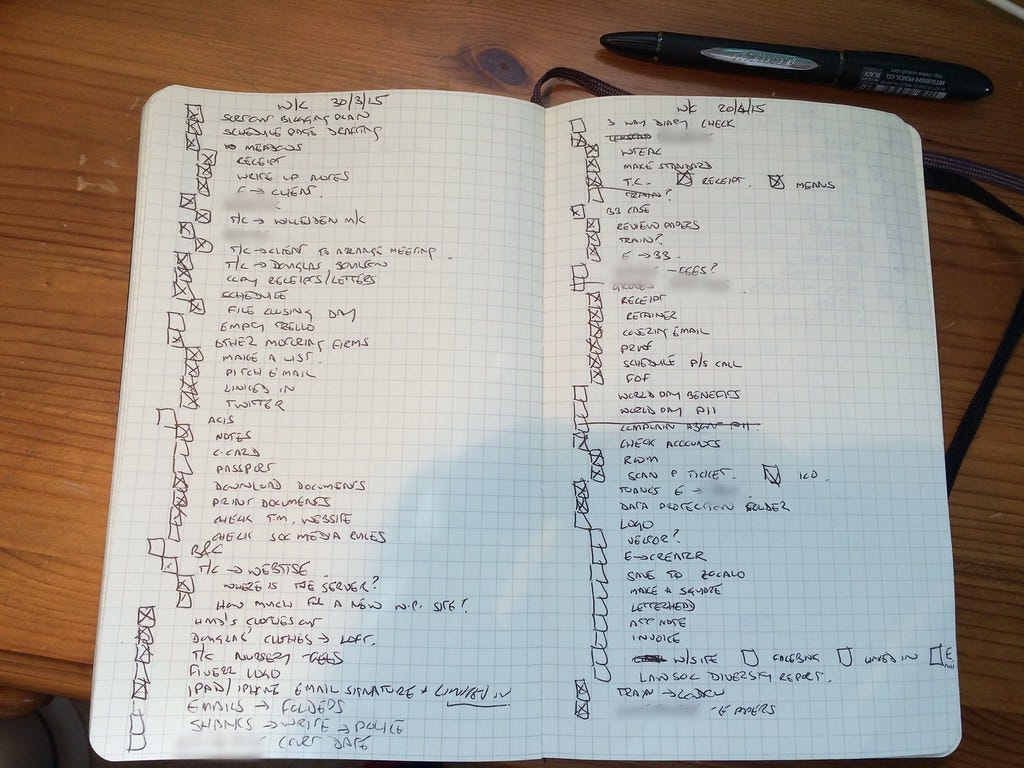 W/C 30/3/15
BLOGGING PLAN
SCHEDULE PAGE DRAFTING
MEADOWS
RECEIPT
WRITE UP NOTES
E → CLIENT
T/C → WILLESDEN M/C
T/C → CLIENT TO ARRANGE MEETING
T/C → DOUGLAS
COPY RECEIPTS/LETTERS
SCHEDULE
FILE CLOSING DAY
EMPTY TRELLO
OTHER MOTORING FIRMS
MAKE A LIST.
PITCH EMAIL
LINKED IN
TWITTER
ACIS
NOTES
C.CARD
PASSPORT
DOWNLOAD DOCUMENTS
PRINT DOCUMENTS
CHECK T.M. WEBSITE
CHECK SOC MEDIA RULES
B&C
T/C → WEBTISE
WHERE IS THE SERVER?
HOW MUCH FOR A NEW W.P. SITE?
CLOTHES OUT
DOUGLAS' CLOTHES → LOFT.
T/C NURSERY FEES
FIVERR LOGO
IPAD/IPHONE EMAIL SIGNATURE + LINKED IN
EMAILS → FOLDERS
SHANKS → WRITE → POLICE
- COURT DATE
W/C 20/4/15
3 WAY DIARY CHECK
MAKE STANDARD
T.C. RECEIPT. MENUS
TRAIN?
BB CASE
REVIEW PAPERS
TRAIN?
E → BB.
- FEES?
RECEIPT
RETAINER
COVERING EMAIL
PRINT
SCHEDULE P/S CALL
FOF
WORLD DAY BENEFITS
WORLD DAY PII
COMPLAIN ABOUT PII.
CHECK ACCOUNTS
ROOM
SCAN P TICKET. ICO.
THANKS E →
DATA PROTECTION FOLDER
LOGO
VECTOR?
E → CREATOR
SAVE TO ZOCALO
MAKE A SQUARE
LETTERHEAD
ATT NOTE
INVOICE
W/SITE FACEBOOK LINKED IN
LAW SOC DIVERSITY REPORT.
TRAIN → LONDON
- E PAPERS
MITSUBISHI PENCIL CO.
BLACK